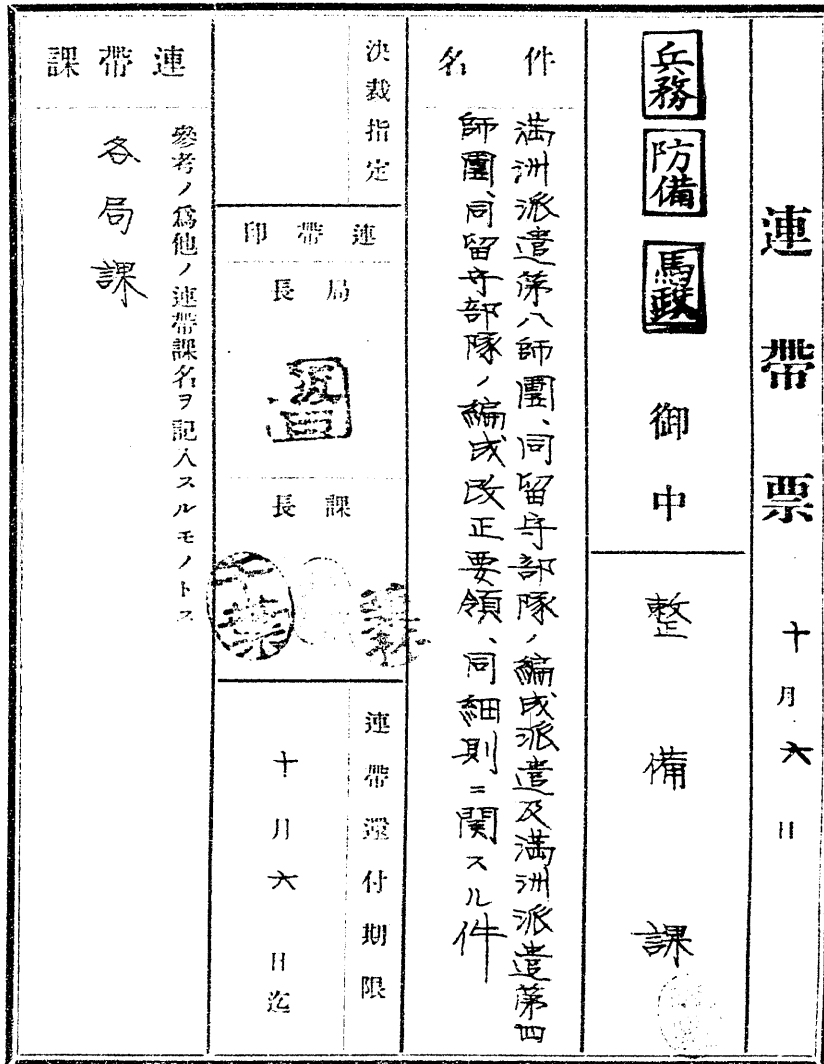 連帶票
十月六日
兵務
防備
馬政
御中
整備課
件名
滿洲派遣第八師團、同留守部隊ノ編成派遣及滿洲派遣第四
師團、同留守部隊ノ編成改正要領、同細則ニ関スル件
決裁指定
連帶印
局長
課長
千葉
連帶還付期限
十月六日迄
連帶課
參考ノ爲他ノ連帶課名ヲ記入スルモノトス
各局課